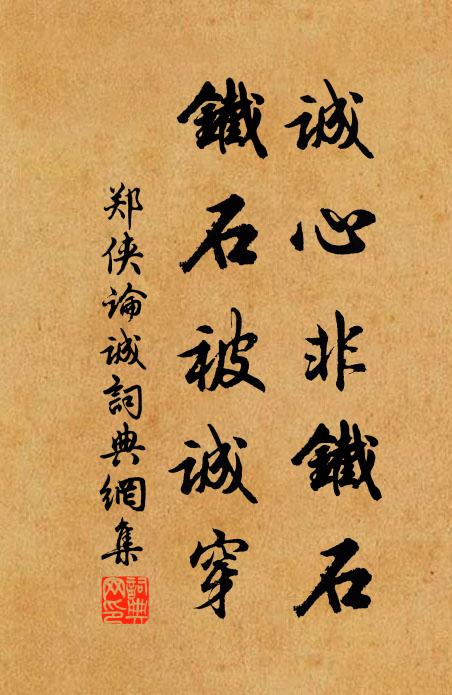 誠心非鐵石
鐵石被誠穿
郑侠论诚詞典網集
詞典網印